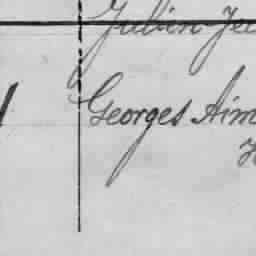 Julien Je
Georges Aim